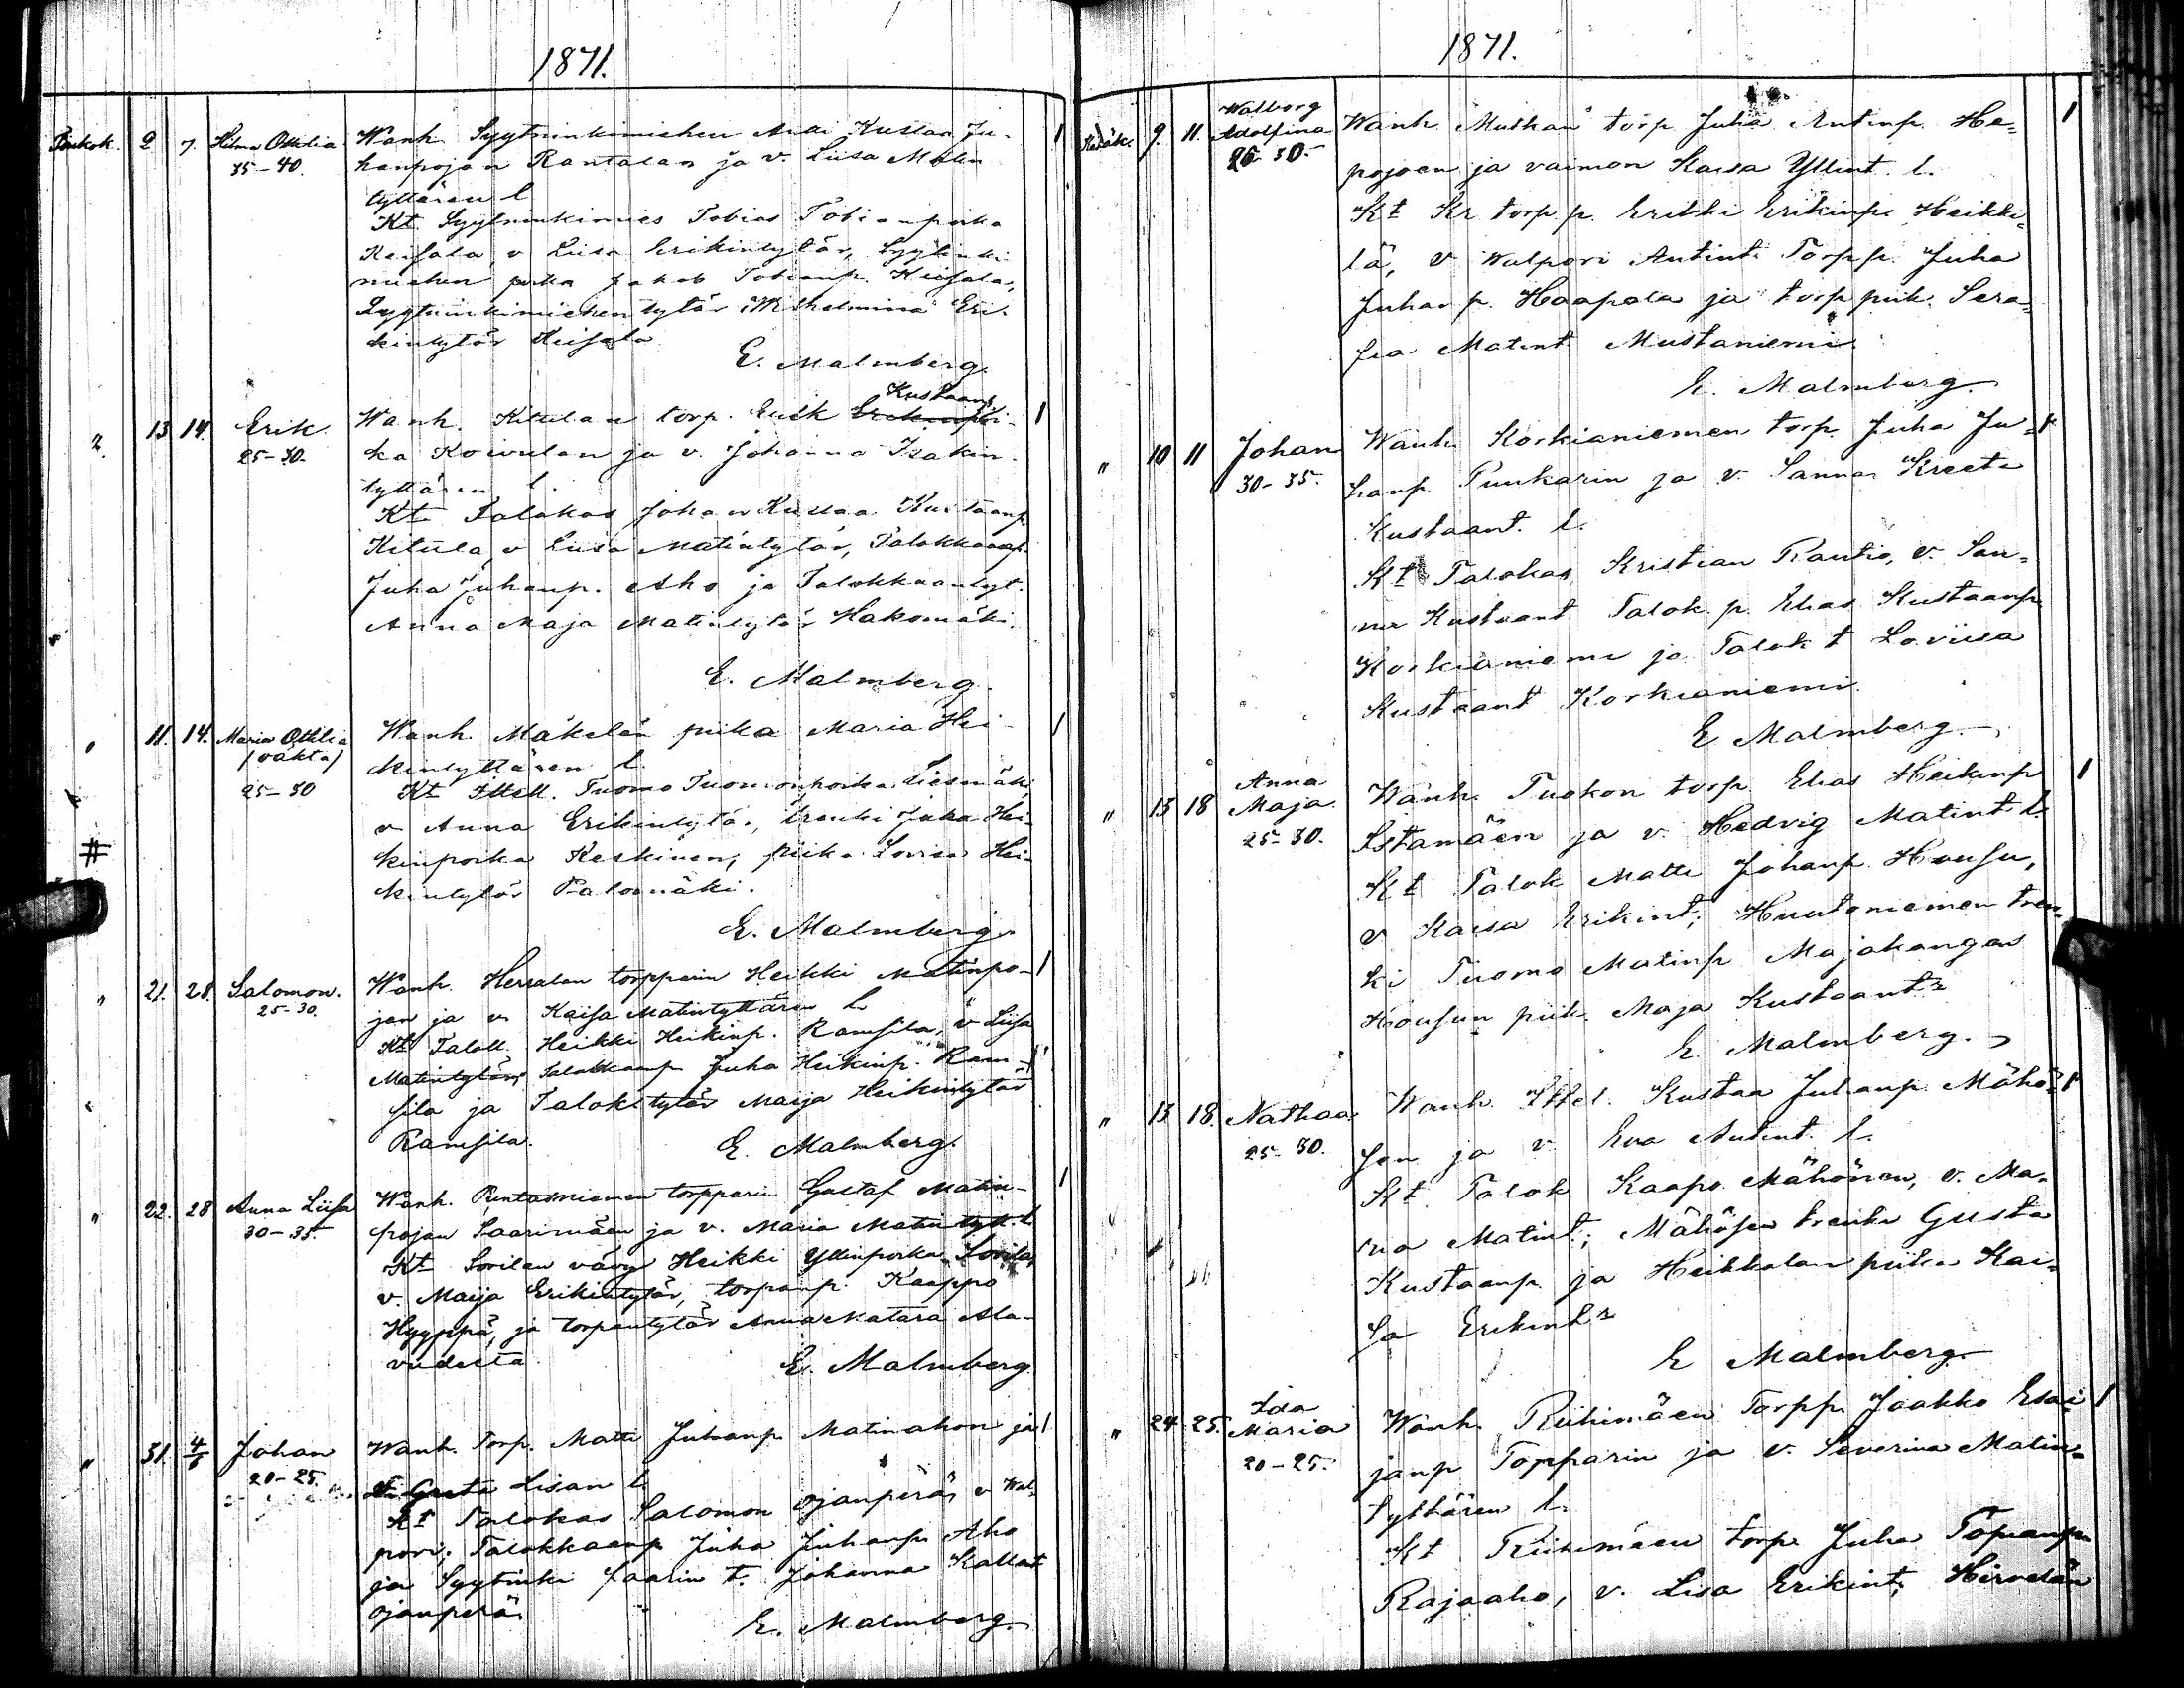 1871.
Toukok. 2 7. Hilma Ottilia Wanh. Syytninkimiehen Antti Kustaa Ju-
35-40. hanpojan Rantalan ja v. Liisa Matin
tyttären l.
Kt Syytninkimies Tobias Tobianpoika
Keisala, v Liisa Erikintytär, Syytinki
miehen poika Jakob Tobianp. Keisala,
Syytninkimiehen tytär Wilhelmina Eri-
kintytär Keisala
E. Malmberg.
Kustaanp
" 13 14. Erik Wanh. Kitulan torp. Erik Erkinpoi-
25-30. ka Koivulan ja v. Johanna Isakin
tyttären l.
Kt Talokas Johan Kustaa Kustaanp.
Kitula, v Liisa Matintytär, Talokkaanp.
Juha Juhanp. Aho ja Talokkaantyt.
Anna Maja Matintytär Hakomäki.
E. Malmberg.
" 11. 14. Maria Ottilia Wanh. Mäkelän piika Maria Hei-
/oäkta/ kintyttären l.
25-30 Kt Ittell. Tuomo Tuomonpoika Liesmäki,
v Anna Erikintytär, trenki Juha Hei-
kinpoika Keskinen, piika Lovisa Hei-
kintytär Palomäki.
E. Malmberg.
" 21. 28. Salomon. Wanh. Herralan torpparin Heikki Matinpo-
25-30. jan ja v. Kaisa Matintyttären l.
Kt Taloll. Heikki Heikinp. Ramsila, v Liisa
Matintytär, Talokkaanp Juha Heikinp. Ram-
sila ja Talok. tytär Maija Heikintytär
Ramsila. E. Malmberg.
" 22. 28 Anna Liisa Wanh. Puntarniemen torpparin Gustaf Matin-
30-35. pojan Saarimäen ja v. Maria Matintytt. l.
Kt Sorilan vävy Heikki Yllinpoika Sorila,
v. Maija Erikintytär, torpanp. Kaappo
Hyyppä, ja torpantytär Anna Matara Ala-
vudesta. E. Malmberg.
" 31. 4/6 Johan Wanh. Torp. Matti Juhanp. Matinahon ja
20-25. v. Greta Lisan l.
Kt Talokas Salomon Ojanperä, v Wal-
pori; Talokkaanp Juha Juhanp. Aho
ja Syytinki saarin t. Johanna Kallat
ojanperä
E. Malmberg.
1871.
Kesäk. 9. 11. Walborg Adolfina Wanh. Mutkan torp. Juha Antinp. He-
25-30. pojoen ja vaimon Kaisa Yllint. l.
Kt Kr. torp. p. Erikki Erikinp. Heikki-
lä, v Walpori Antint. Torpp. Juha
Juhanp. Haapala ja torp piik. Sera-
fia Matint Mustaniemi.
E. Malmberg.
" 10 11 Johan Wanh. Korkianiemen torp. Juha Ju-
30-35. hanp. Punkarin ja v. Sanna Kreeta
Kustaant. l.
Kt Talokas Kristian Rautio, v. San-
na Kustaant Talok. p. Elias Kustaanp.
Korkianiemi ja Talok t Loviisa
Kustaant Korkianiemi.
E Malmberg.
" 13 18 Anna Maja. Wanh. Tuokon torp. Elias Heikinp
25-30. Istamäen ja v. Hedvig Matint l.
Kt Talok Matti Johanp. Housu,
v Kaisa Erikint; Huutoniemen tren-
ki Tuomo Matinp Majakangas
Housun piik. Maja Kustaantr
E. Malmberg.
" 13 18. Nathan. Wanh. Ittel. Kustaa Juhanp. Mähö-
25-30. sen ja v. Eva Antint. l.
Kt Talok Kaapo Mähönen, v. Ma-
ria Matint; Mähösen trenki Gusta
Kustaanp. ja Heikkalan piika Kai-
sa Erikintr
E Malmberg.
" 24 25. Ida Maria Wanh. Riihimäen Torpp. Jaakko Esai-
20-25. janp Topparin ja v. Severina Matin-
tyttären l.
Kt Riihimäen torp. Juha Topianp.
Rajaaho, v. Lisa Erikint; Hirvelän